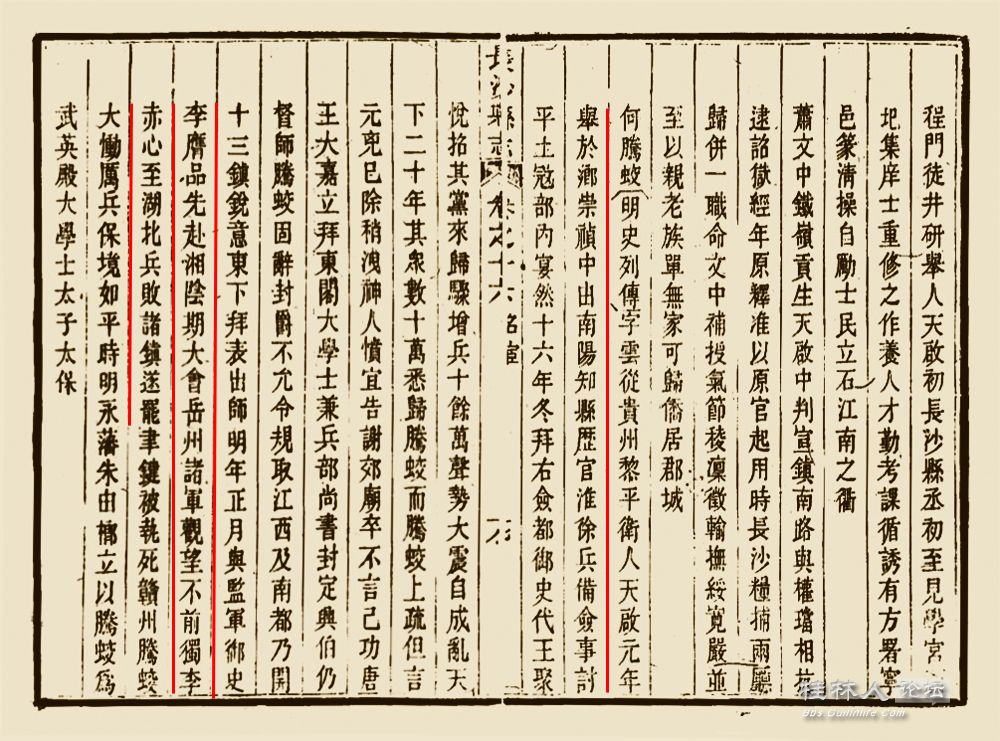 程門徒井研舉人天啟初長沙縣丞初至見學宮
圯集庠士重修之作養人才勤考課循誘有方署寧
邑篆清操自勵士民立石江南之衢
蕭文中鐵嶺貢生天啟中判宣鎮南路與權璫相抗
逮詔獄經年原釋准以原官起用時長沙糧捕兩廳
歸併一職命文中補授氣節稜凜徵輸撫綏寬嚴並
至以親老族單無家可歸僑居郡城
何騰蛟明史列傳字雲從貴州黎平衛人天啟元年
舉於鄉崇禎中出南陽知縣歷官淮徐兵備僉事討
平土寇部內宴然十六年冬拜右僉都御史代王聚
長沙縣志 卷之十六 名宦
悅招其黨來歸驟增兵十餘萬聲勢大震自成亂天
下二十年其眾數十萬悉歸騰蛟而騰蛟上疏但言
元兇已除稍洩神人憤宜告謝郊廟卒不言己功唐
王大嘉立拜東閣大學士兼兵部尚書封定興伯仍
督師騰蛟固辭封爵不允令規取江西及南都乃開
十三鎮銳意東下拜表出師明年正月與監軍御史
李膺品先赴湘陰期大會岳州諸軍觀望不前獨李
赤心至湖北兵敗諸鎮遂罷聿鍵被執死贛州騰蛟
大慟厲兵保境如平時明永藩朱由榔立以騰蛟為
武英殿大學士太子太保
桂林人论坛
Bbs.Guilinlife.Com